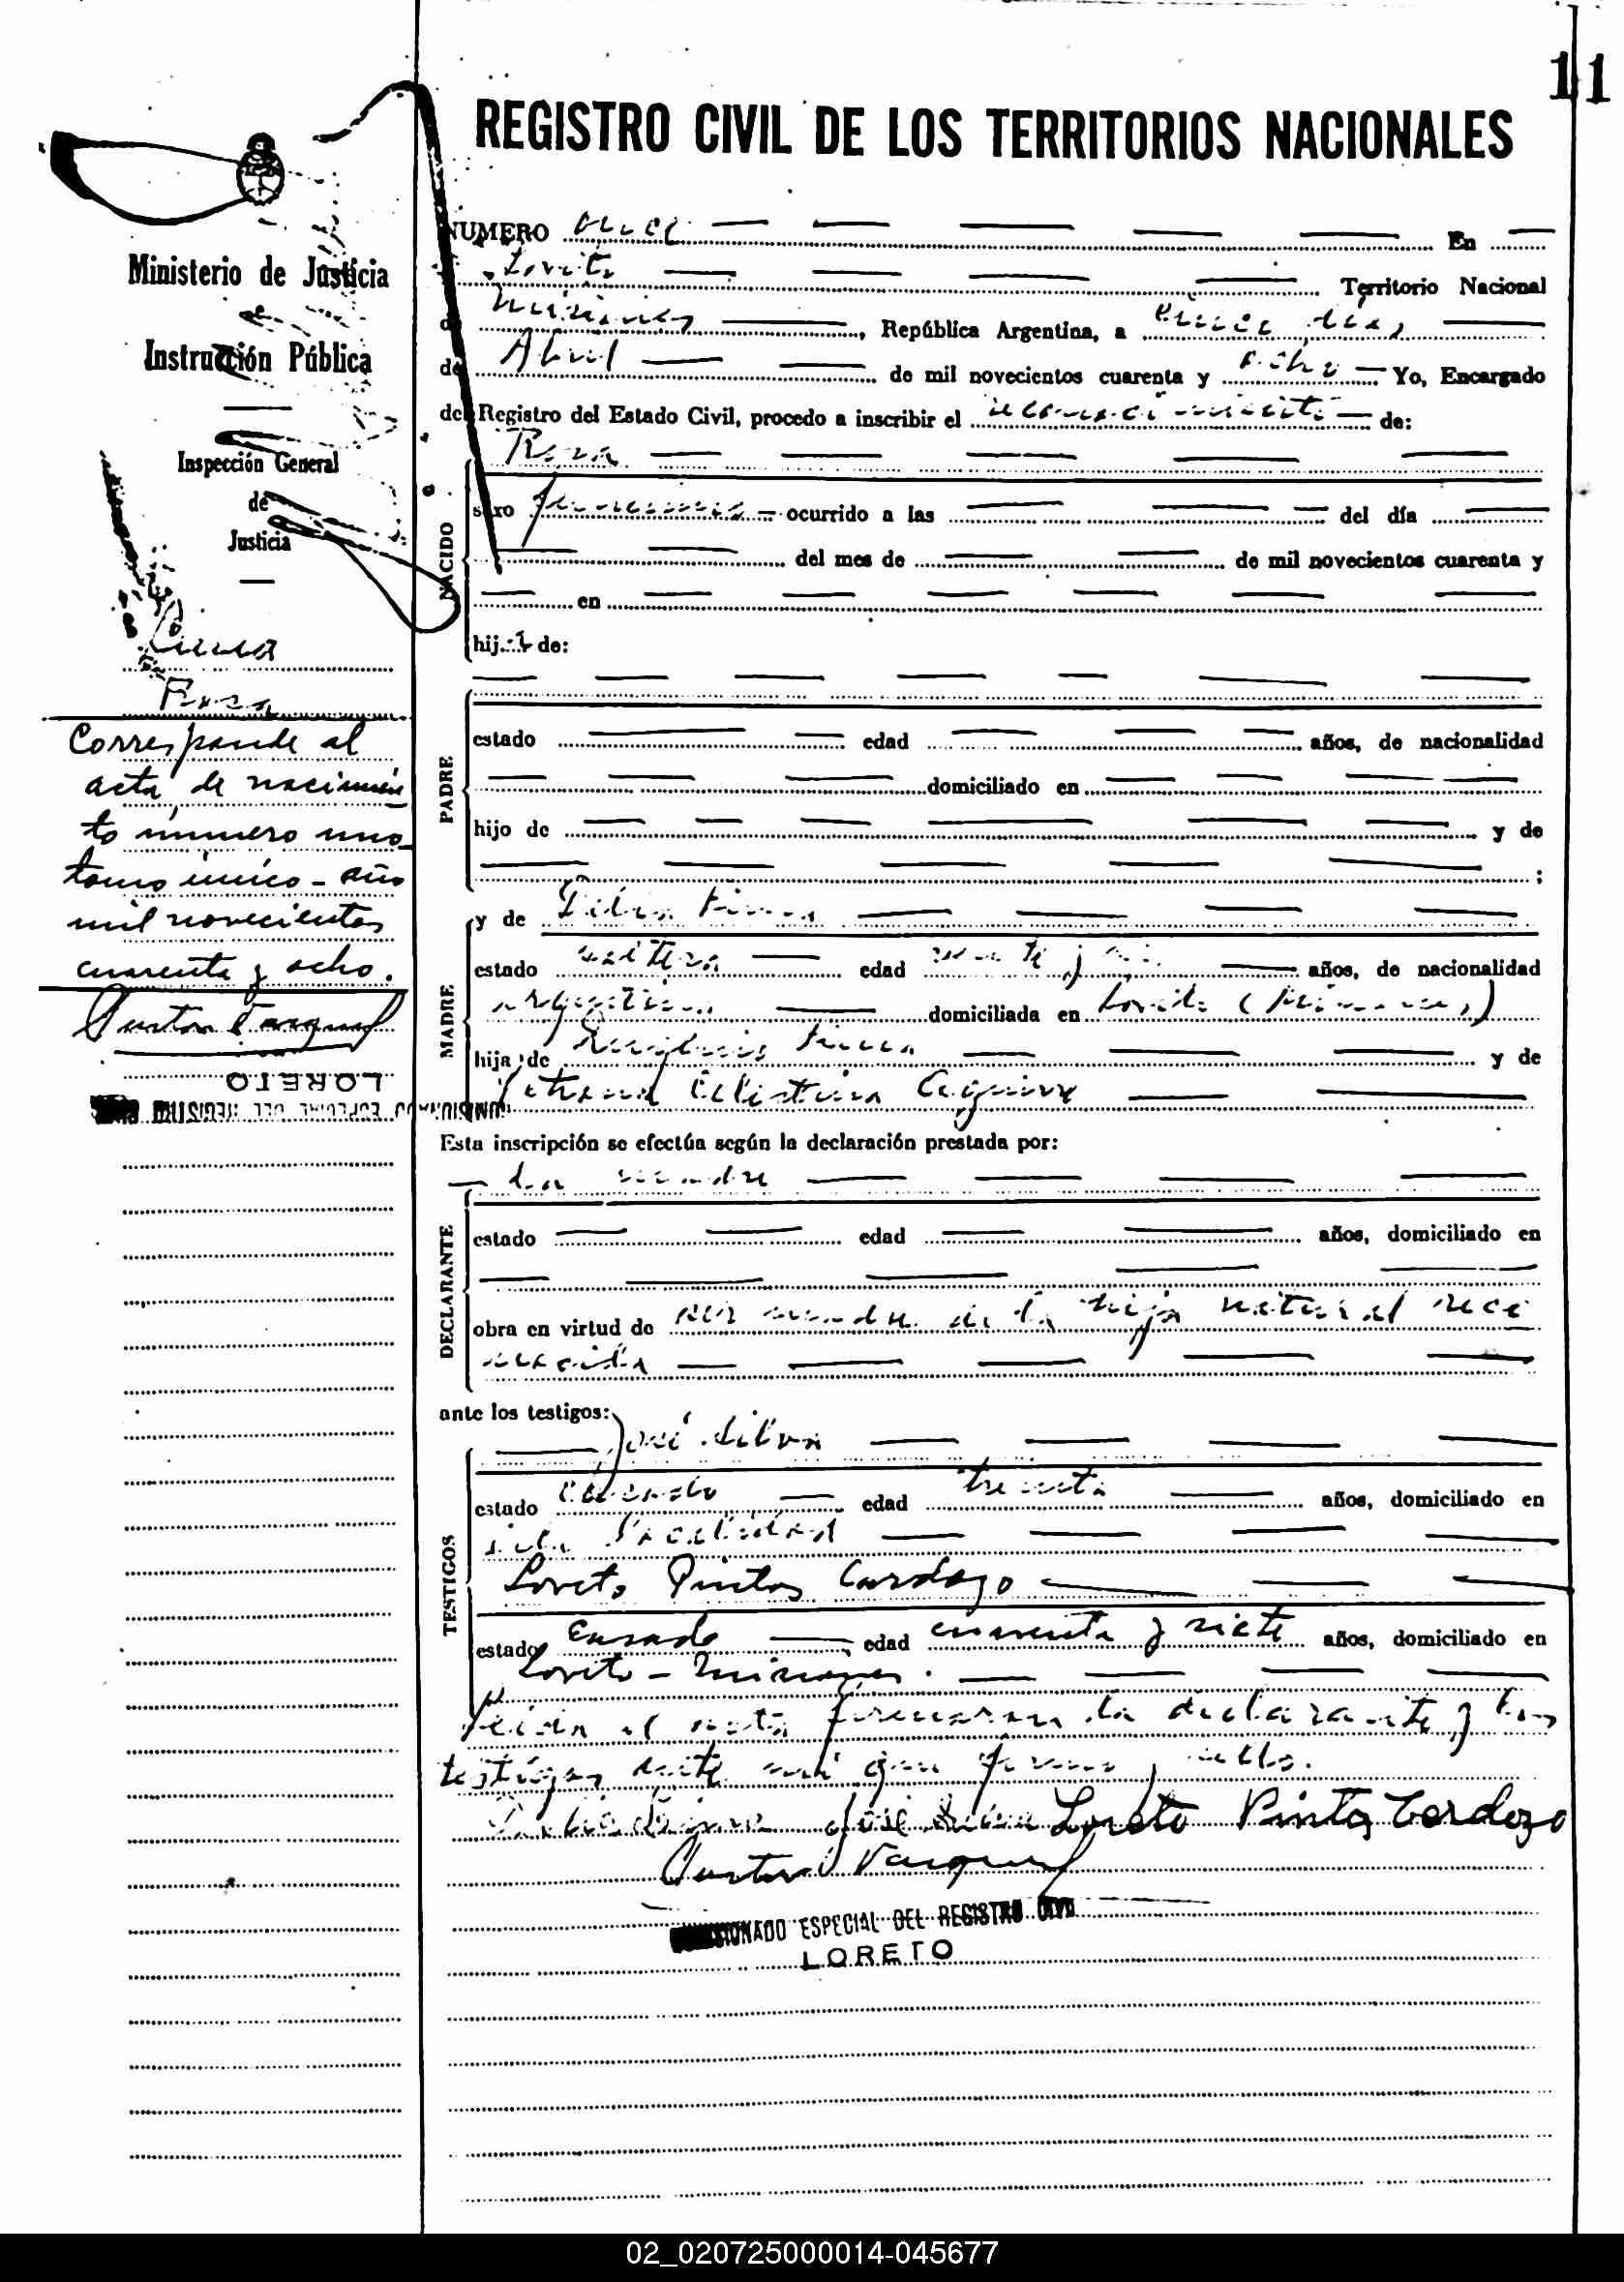 11
REGISTRO CIVIL DE LOS TERRITORIOS NACIONALES
Ministerio de Justicia
e
Instrucción Pública
Inspección General
de
Justicia
Rosa
Corresponde al
acta de nacimien
to número uno
tomo único - año
mil novecientos
cuarenta y ocho.
LORETO
NUMERO once En
Loreto Territorio Nacional
de Misiones, República Argentina, a días
de Abril de mil novecientos cuarenta y ocho Yo, Encargado
del Registro del Estado Civil, procedo a inscribir el reconocimiento de:
Rosa
NACIDO
sexo femenino ocurrido a las del día
del mes de de mil novecientos cuarenta y
en
hija de:
PADRE
estado edad años, de nacionalidad
domiciliado en
hijo de y de
;
MADRE
y de
estado soltera edad años, de nacionalidad
argentina domiciliada en Loreto (Misiones)
hija de y de
Celestina Aguirre
Esta inscripción se efectúa según la declaración prestada por:
La madre
DECLARANTE
estado edad años, domiciliado en
obra en virtud de ser madre de la hija natural reco
nocida
ante los testigos:
José Silva
TESTIGOS
estado casado edad treinta años, domiciliado en
esta localidad
Loreto Pintos Cardozo
estado Casado edad cuarenta y siete años, domiciliado en
Loreto - Misiones.
Leida el acta firmaron la declarante y los
testigos ante mí que firmo y sello.
José Silva Loreto Pintos Cardozo
COMISIONADO ESPECIAL DEL REGISTRO CIVIL
LORETO
02_020725000014-045677